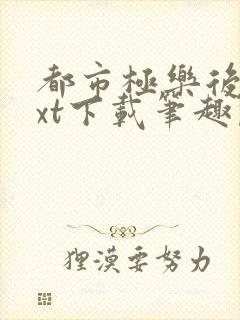 都市極樂後
xt下載筆趣
狸漠要努力